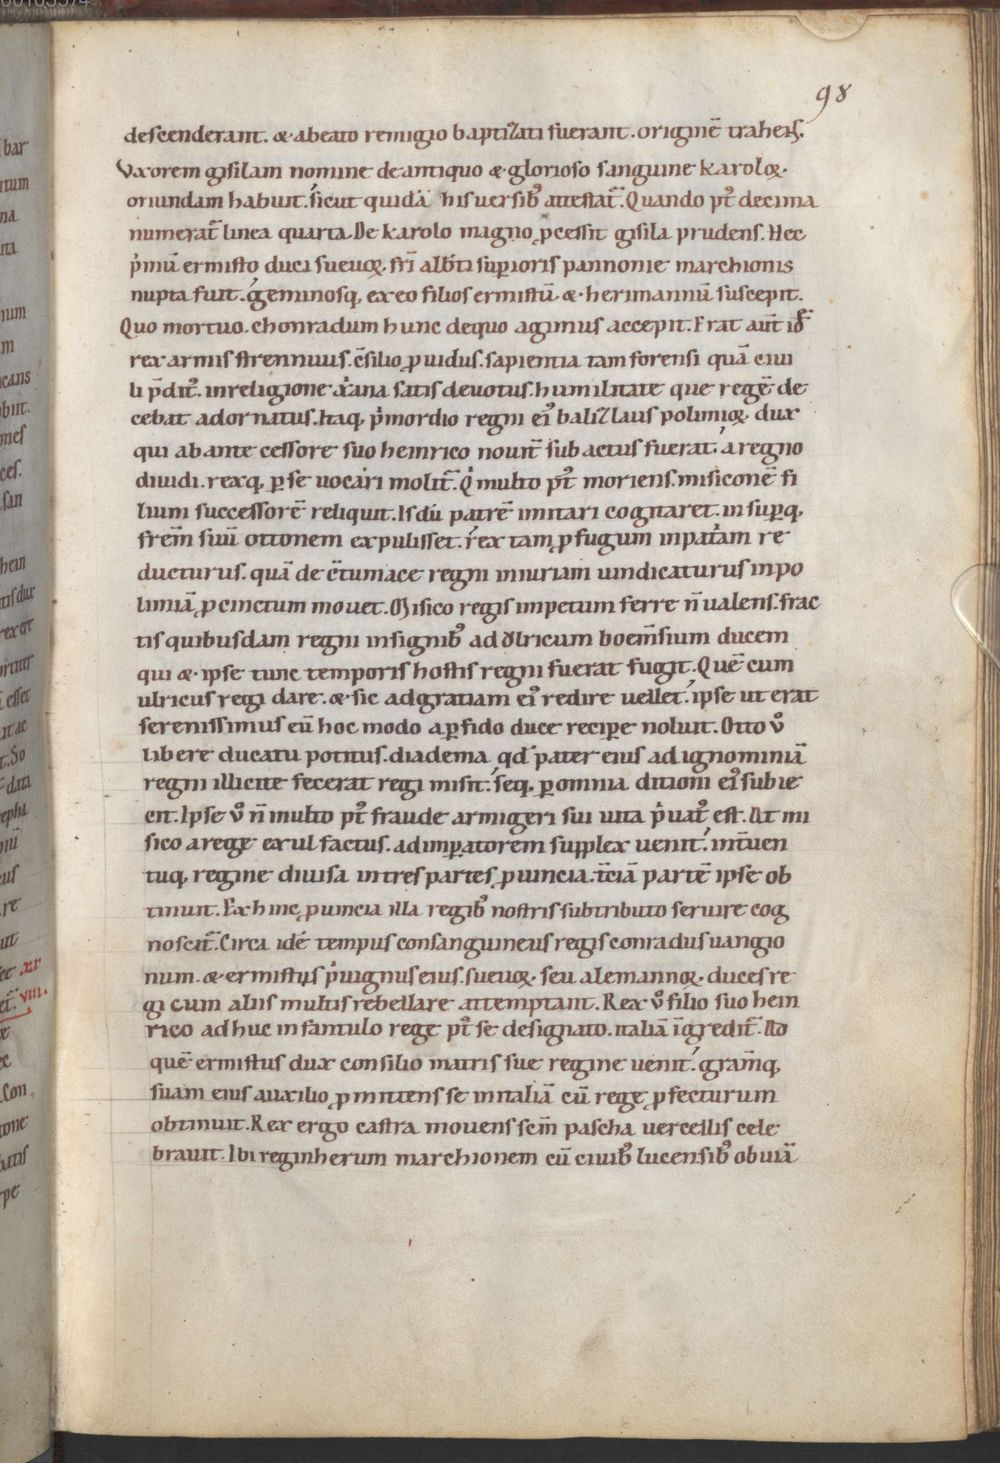 98
descenderant. & abeato remigio baptizati fuerant. originē trahens.
Vxorem gisilam nomine deantiquo & glorioso sanguine karoloꝝ.
oriundam habuit. sicut quidā his uersibꝰ attestat̄. Quando pt̕ decima
numerat̄ linea quarta De karolo magno ꝓcessit gisila prudens. Hec
p̍mū ermisto duci sueuoꝝ. fr̄i alb̄ti suꝑioris pannonie marchionis
nupta fuit. geminosq; exeo filios ermistū & herimannū suscepit.
Quo mortuo. chonradum hunc dequo agimus accepit. Erat aut̄ id̄
rex armis strennuus. c̄silio ꝓuidus. sapientia tam forensi quā ciui
li p̄dit̕. inreligione xp̍ana satis deuotus. humilitate que regē de
cebat adornatus. Itaq; p̍mordio regni eiꝰ balizlaus polimioꝝ dux
qui abante cessore suo heinrico nouit̄ subactus fuerat. a regno
diuidi. rexq; ꝑ se uocari molit̄. Q̍ multo pt̕ moriens. misiconē fi
lium successorē reliquit. Is dū patrē imitari cogitaret. insuꝑq;
frēm suū ottonem expulisset. rex tam ꝓfugum inpat̍am re
ducturus. quā de c̄tumace regni iniuriam uindicaturus inpo
limiā ꝓcinctum mouet. Misico regis impetum ferre n̄ ualens. frac
tis quibusdam regni insignibꝰ ad ŏlricum boem̄sium ducem
qui & ipse tunc temporis hostis regni fuerat fugit. Quē cum
ulricus regi dare. & sic adgratiam eiꝰ redire uellet. ipse ut erat
serenissimus eū hoc modo aꝑfido duce reciꝑe noluit. Otto v̊
libere ducatu potitus. diadema qd̄ pater eius adignominiā
regni illicite fecerat regi misit. seq; ꝑomnia ditioni eiꝰ subie
cit. Ipse v̊ n̄ multo pt̕ fraude armigeri sui uita p̍uat̕ est. At mi
sico arege exul factus. adimꝑatorem supplex uenit. int̄uen
tuq; regine diuisa intrespartes ꝓuincia. t̄ciā partē ipse ob
tinuit. Exhinc ꝓuincia illa regibꝰ nostris subtributo seruire cog
noscit̄. Circa idē tempus consanguineus regis conradus uangio
num. & ermistus p̍uignus eius. sueuoꝝ. seu alemannoꝝ. duces re
gi cum aliis multis rebellare attemptant. Rex v̊ filio suo hein
rico adhuc infantulo rege pt̕ se designato. italiā īgredit̄. Ad
quē ermistus dux consilio matris sue regine uenit. gram̄q;
suam eius auxilio ꝓmittens se initaliā cū rege ꝓfecturum
obtinuit. Rex ergo castra mouens sēm pascha uercellis cele
brauit. Ibi reginherum marchionem cū ciuibꝰ lucensibꝰ obuiā